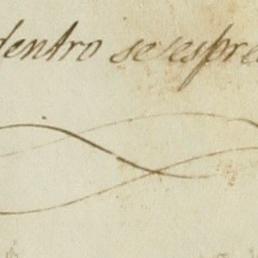 dentro se espre